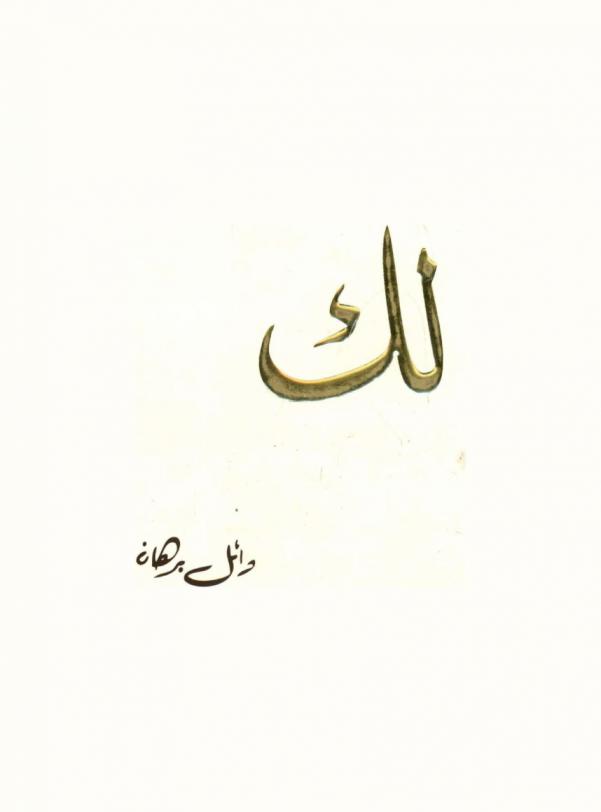 لك
وائل برهان